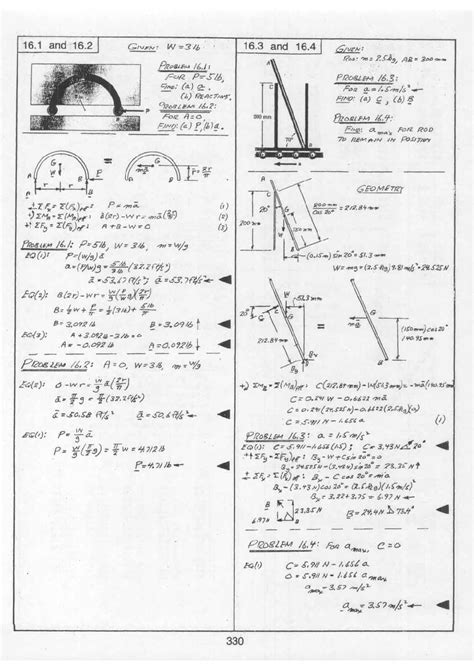 16.1 and 16.2
GIVEN: W = 3 lb
PROBLEM 16.1:
FOR P = 5 lb,
FIND: (a) ā
(b) REACTIONS
PROBLEM 16.2:
FOR A = 0,
FIND: (a) P, (b) ā.
P
A B
G G
A B P
r r
=
mā
2r/π
A B
→+ ΣFx = Σ(Fx)eff: P = mā (1)
+) ΣMA = Σ(MA)eff: B(2r) - Wr = mā(2r/π) (2)
+↑ ΣFy = Σ(Fy)eff: A + B - W = 0 (3)
PROBLEM 16.1: P = 5 lb, W = 3 lb, m = W/g
EQ(1): P = (W/g)ā
ā = (P/W)g = 5 lb/3 lb (32.2 ft/s²)
ā = 53.67 ft/s²; ā = 53.7 ft/s² →
EQ(2): B(2r) - Wr =
B = ½W + P/π = ½(3) + 5/π
B = 3.092 lb B = 3.09 lb ↑
EQ(3): A + 3.092 - 3 lb = 0
A = -0.092 lb A = 0.092 lb ↓
PROBLEM 16.2: A = 0, W = 3 lb, m = W/g
EQ(2): 0 - Wr = W/g ā (2r/π)
ā = π/2 g = π/2 (32.2 ft/s²)
ā = 50.58 ft/s² ā = 50.6 ft/s² ←
EQ(1): P = W/g ā
P = W/g (π/2 g) = π/2 W = 4.712 lb
P = 4.71 lb ←
16.3 and 16.4
GIVEN:
ROD: m = 2.5 kg, AB = 300 mm
PROBLEM 16.3:
FOR a = 1.5 m/s² ←
FIND: (a) C, (b) B
PROBLEM 16.4:
FIND: amax FOR ROD
TO REMAIN IN POSITION
A
C
200 mm
70°
B
GEOMETRY
200 mm / cos 20° = 212.84 mm
20°
(0.15 m) sin 20° = 51.3 mm
W = mg = (2.5 kg) 9.81 m/s² = 24.525 N
W 51.3 mm
C 20° G
=
mā
(150 mm) cos 20°
140.95 mm
Bx
By
+) ΣMB = Σ(MB)eff: C(212.84 mm) - W(51.3 mm) = -mā(140.95 mm)
C = 0.241 W - 0.6622 mā
C = 0.241 (24.525 N) - 0.6622 (2.5 kg)(a)
C = 5.911 N - 1.656 a (1)
PROBLEM 16.3: a = 1.5 m/s²
EQ(1): C = 5.911 - 1.656 (1.5); C = 3.43 N 20°
+↑ ΣFy = Σ(Fy)eff: By - W + C sin 20° = 0
By = 24.525 N - (3.43 N) sin 20° = 23.35 N ↑
Bx - (3.43 N) cos 20° = (2.5 kg)(1.5 m/s²)
Bx = 3.22 + 3.75 = 6.97 N ←
B 23.35 N
6.97 N
B = 24.4 N 73.4°
PROBLEM 16.4: FOR amax, C = 0
EQ(1) C = 5.911 N - 1.656 a
0 = 5.911 N - 1.656 amax
amax = 3.57 m/s²
amax = 3.57 m/s² ←
330